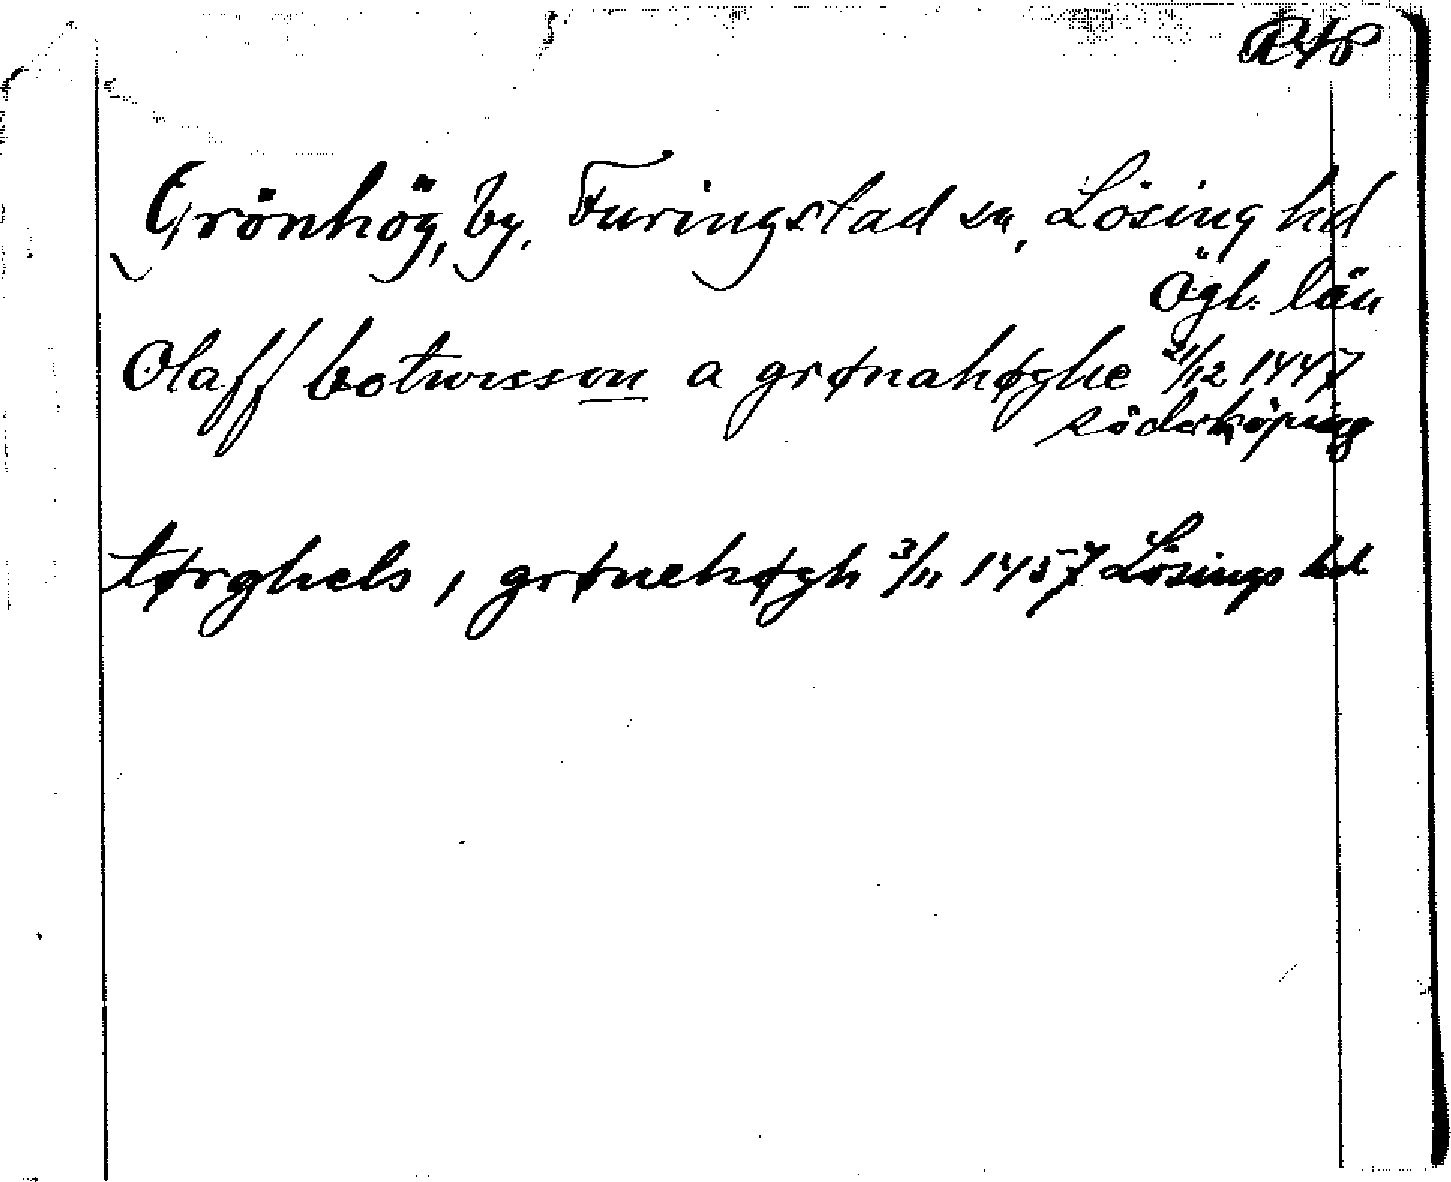 Grönhög, by, Furingstad sn, Lösing hd
Ögl. län
Olaff botwisson a grønahøghe 21/12 1447
söderköping
tørghels, grønehøgh 3/11 1457 Lösings hd